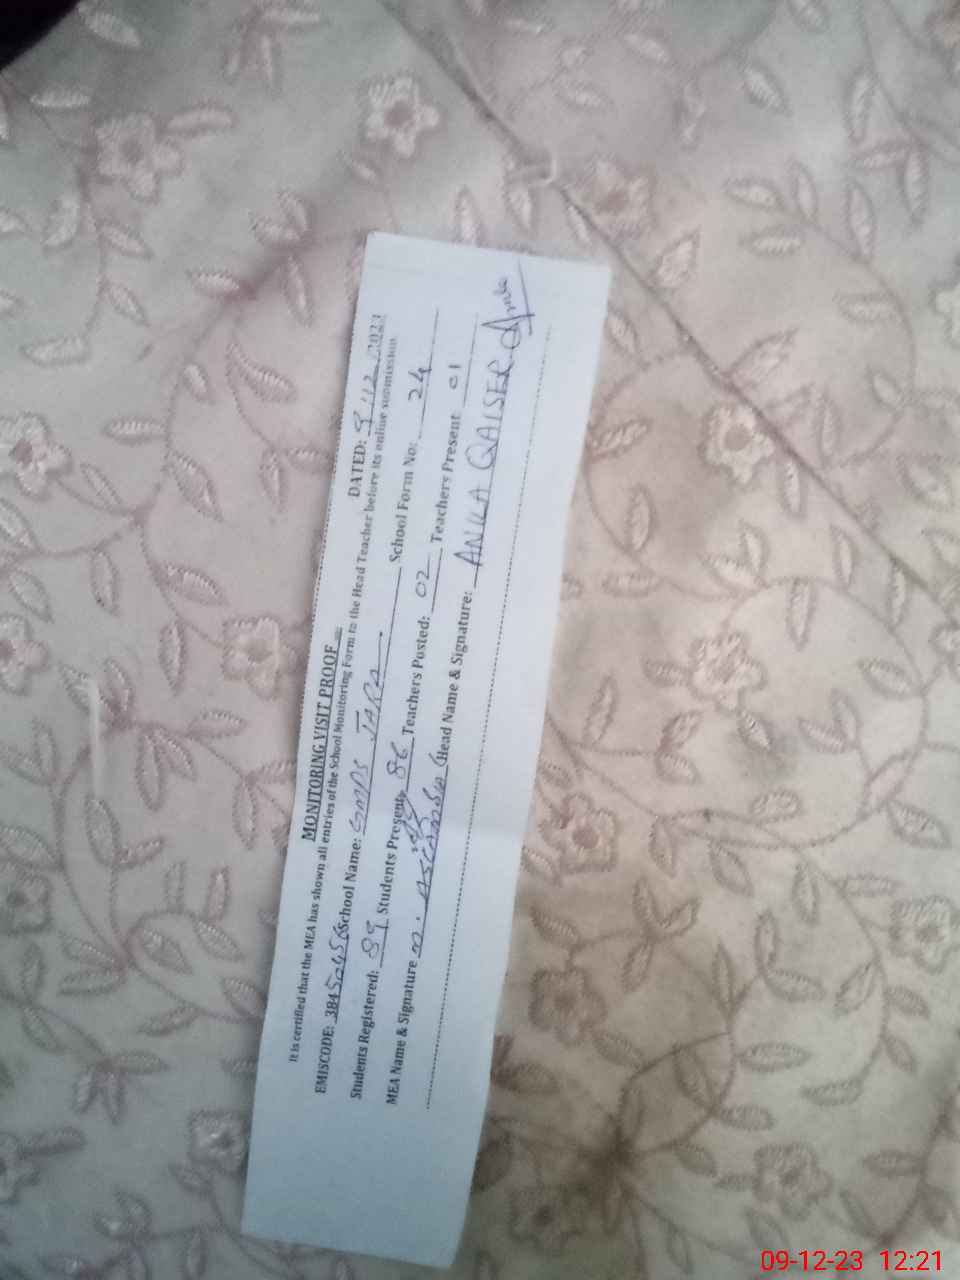 MONITORING VISIT PROOF DATED: 9/12/2023
It is certified that the MEA has shown all entries of the School Monitoring Form to the Head Teacher before its online submission
EMISCODE: 38450456 School Name: GMPS JARA School Form No: 24
Students Registered: 89 Students Present: 86 Teachers Posted: 02 Teachers Present 01
MEA Name & Signature M. Head Name & Signature: ANILA QAISER
09-12-23 12:21